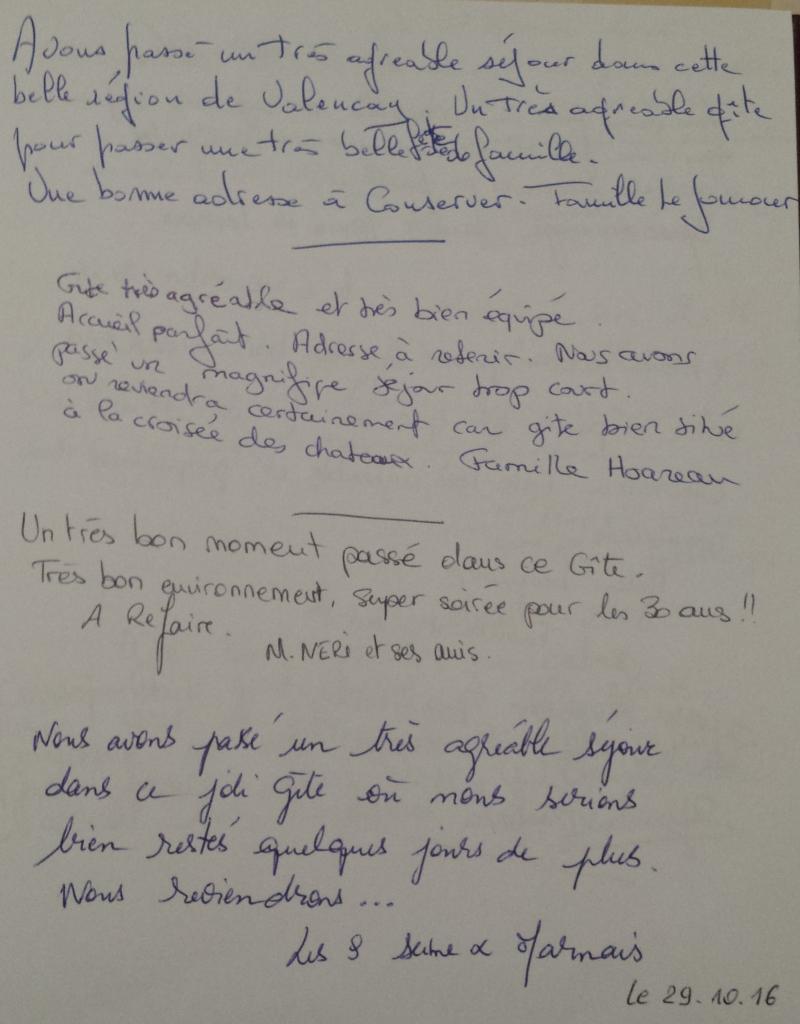 Avons passé un très agreable séjour dans cette
belle région de Valencay. Un très agreable gîte
pour passer une très belle fête de famille.
Une bonne adresse à Conserver. Famille Le
Gite très agréable et très bien équipé.
Accueil parfait. Adresse à retenir. Nous avons
passé un magnifique séjour trop court.
on reviendra certainement car gite bien situé
à la croisée des chateaux. Famille Hoareau
Un très bon moment passé dans ce Gîte.
Très bon environnement, super soirée pour les 30 ans !!
A Refaire.
M. NERI et ses amis.
Nous avons passé un très agréable séjour
dans ce joli gîte où nous serions
bien restés quelques jours de plus.
Nous reviendrons...
Les 9 Seine & Marnais
le 29.10.16